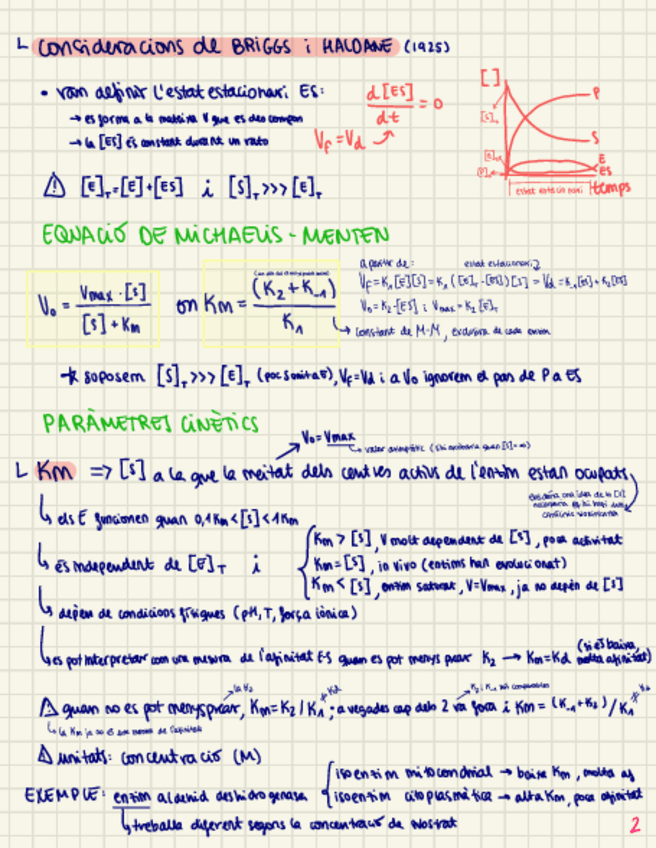 └ Consideracions de BRIGGS i HALDANE (1925)
• van definir l'estat estacionari ES: d[ES]/dt = 0
→ es forma a la mateixa V que es descompon
→ la [ES] és constant durant un rato
Vf = Vd
[ ]
P
S
E
ES
estat estacionari
temps
⚠ [E]T = [E] + [ES] i [S]T >>> [E]T
EQUACIÓ DE MICHAELIS - MENTEN
V₀ = Vmax · [S] / [S] + Km on Km = (K₂ + K₋₁) / K₁
a partir de: estat estacionari
Vf = K₁[E][S] = K₁([E]T - [ES])[S] = Vd = K₋₁[ES] + K₂[ES]
V₀ = K₂ · [ES] i Vmax = K₂[E]T
↳ constant de M-M, exclusiva de cada enzim
* suposem [S]T >>> [E]T (poc S unit a E), Vf = Vd i a V₀ ignorem el pas de P a ES
PARÀMETRES CINÈTICS
V₀ = Vmax
↳ valor asimptòtic
└ Km => [S] a la que la meitat dels centres actius de l'enzim estan ocupats
ens dona una idea de la [S]
↳ els E funcionen quan 0,1Km < [S] < 1Km
↳ és independent de [E]T i
Km > [S], V molt dependent de [S], poca activitat
Km = [S], in vivo (enzims han evolucionat)
Km < [S], enzim saturat, V = Vmax, ja no depèn de [S]
↳ depèn de condicions físiques (pH, T, força iònica)
↳ es pot interpretar com una mesura de l'afinitat E-S quan es pot menysprear K₂ → Km = Kd (si és baixa, molta afinitat)
la K₂
K₂ i K₋₁ són comparables
⚠ quan no es pot menysprear, Km = K₂/K₁ ≠ Kd; a vegades cap dels 2 va força i Km = (K₋₁ + K₂)/K₁
↳ la Km ja no és una mesura de l'afinitat
⚠ unitats: concentració (M)
EXEMPLE: enzim aldehid deshidrogenasa
isoenzim mitocondrial → baixa Km, molta af
isoenzim citoplasmàtica → alta Km, poca afinitat
↳ treballa diferent segons la concentració de
2